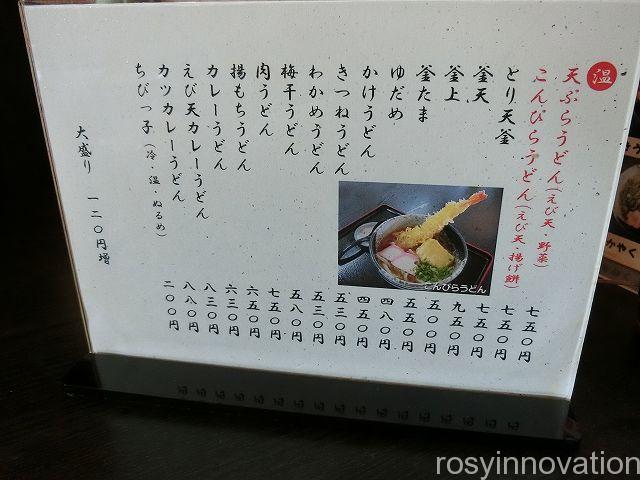 温
天ぷらうどん(えび天・野菜) 七五〇円
こんぴらうどん(えび天・揚げ餅) 七五〇円
とり天釜 七五〇円
釜天 九五〇円
釜上 五〇〇円
釜たま 五五〇円
ゆだめ 四八〇円
かけうどん 四五〇円
きつねうどん 五三〇円
わかめうどん 五三〇円
梅干うどん 五八〇円
肉うどん 七五〇円
揚もちうどん 六五〇円
カレーうどん 六三〇円
えび天カレーうどん 八三〇円
カツカレーうどん 八八〇円
ちびっ子(冷・温・ぬるめ) 二〇〇円
大盛り 一二〇円増
こんぴらうどん
rosyinnovation